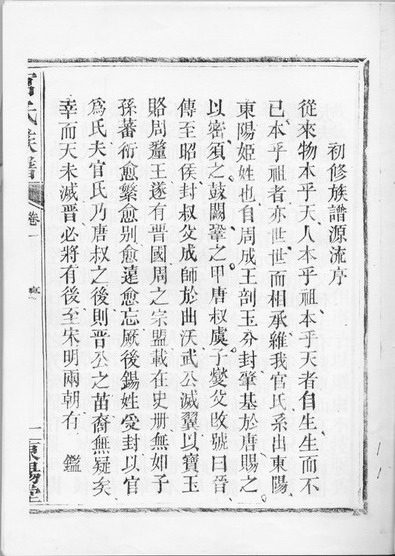 初修族譜源流序
從來物本乎天人本乎祖本乎天者自生生而不
已本乎祖者亦世世而相承維我官氏系出東陽
東陽姬姓也自周成王剖玉分封肇基於唐賜之
以密須之鼓闕鞏之甲唐叔虞子燮父改號曰晉
傳至昭侯封叔父成師於曲沃武公滅翼以寶玉
賂周釐王遂有晉國周之宗盟載在史册無如子
孫蕃衍愈繁愈别愈遠愈忘厥後錫姓受封以官
爲氏夫官氏乃唐叔之後則晉公之苗裔無疑矣
幸而天未滅晉必將有後至宋明兩朝有 鑑
官氏族譜 卷一 序 一 東陽堂